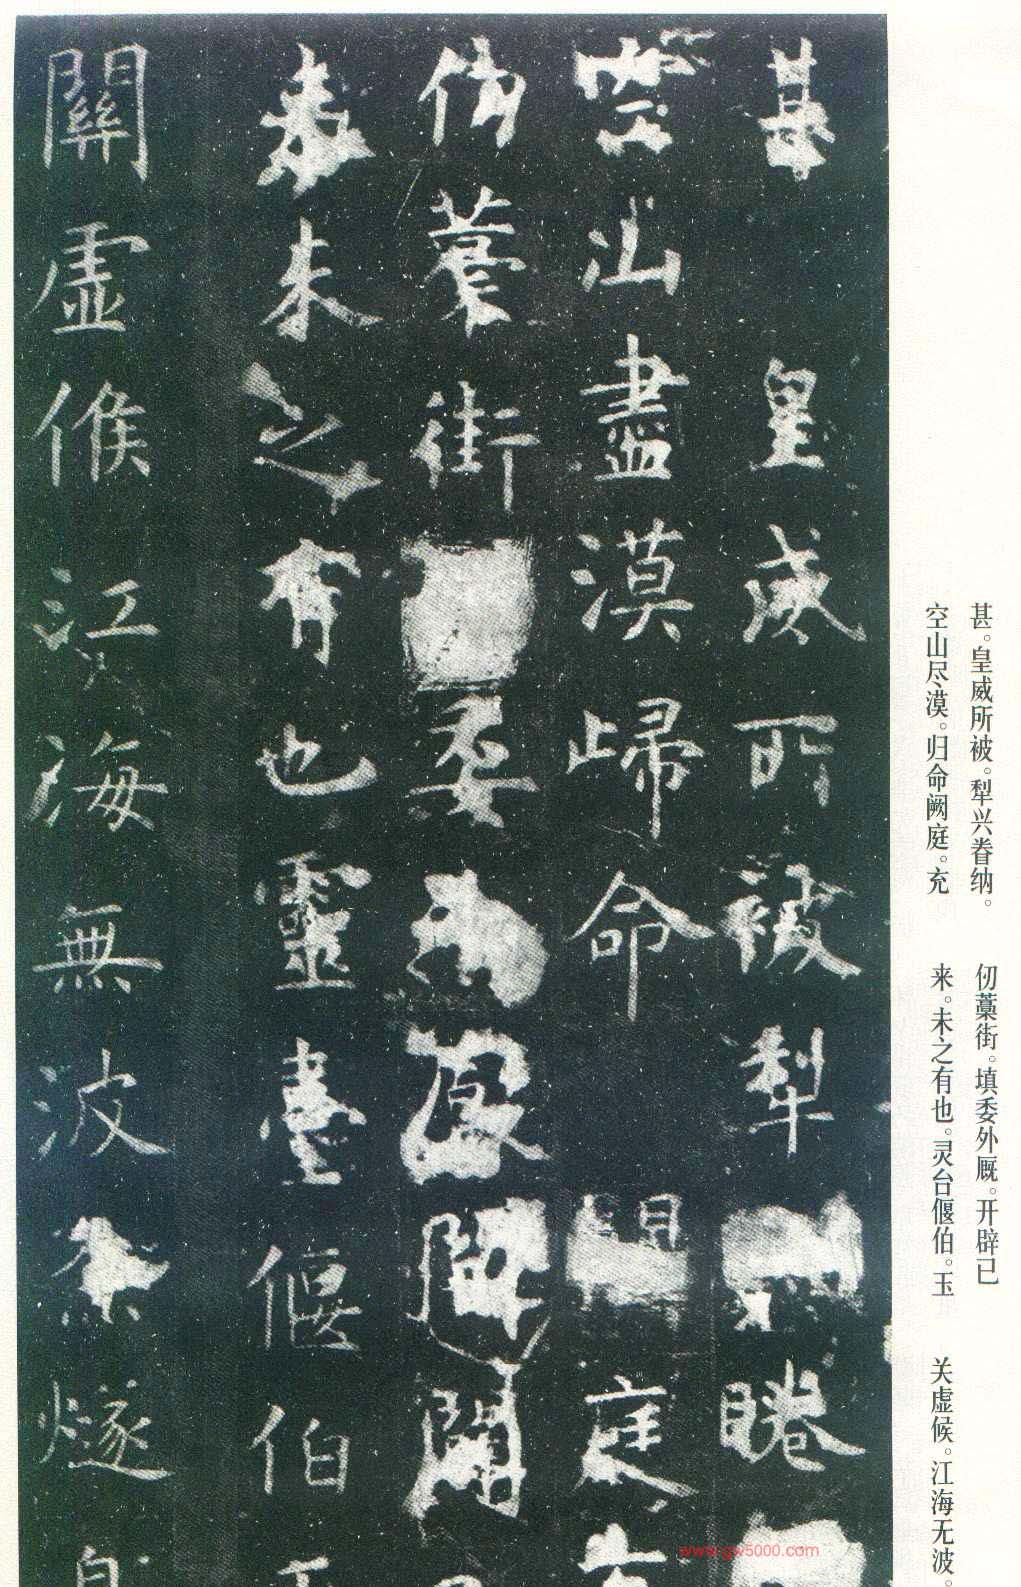 甚。皇威所被。犁兴眷纳。
空山尽漠。归命阙庭。充
仞藁街。填委外厩。开辟已
来。未之有也。灵台偃伯。玉
关虚候。江海无波。
甚皇威所被犁睠
空山盡漠歸命庭
仞藁街委開闢
來未之有也靈臺偃伯
關虛候江海無波燧
www.gw5000.com